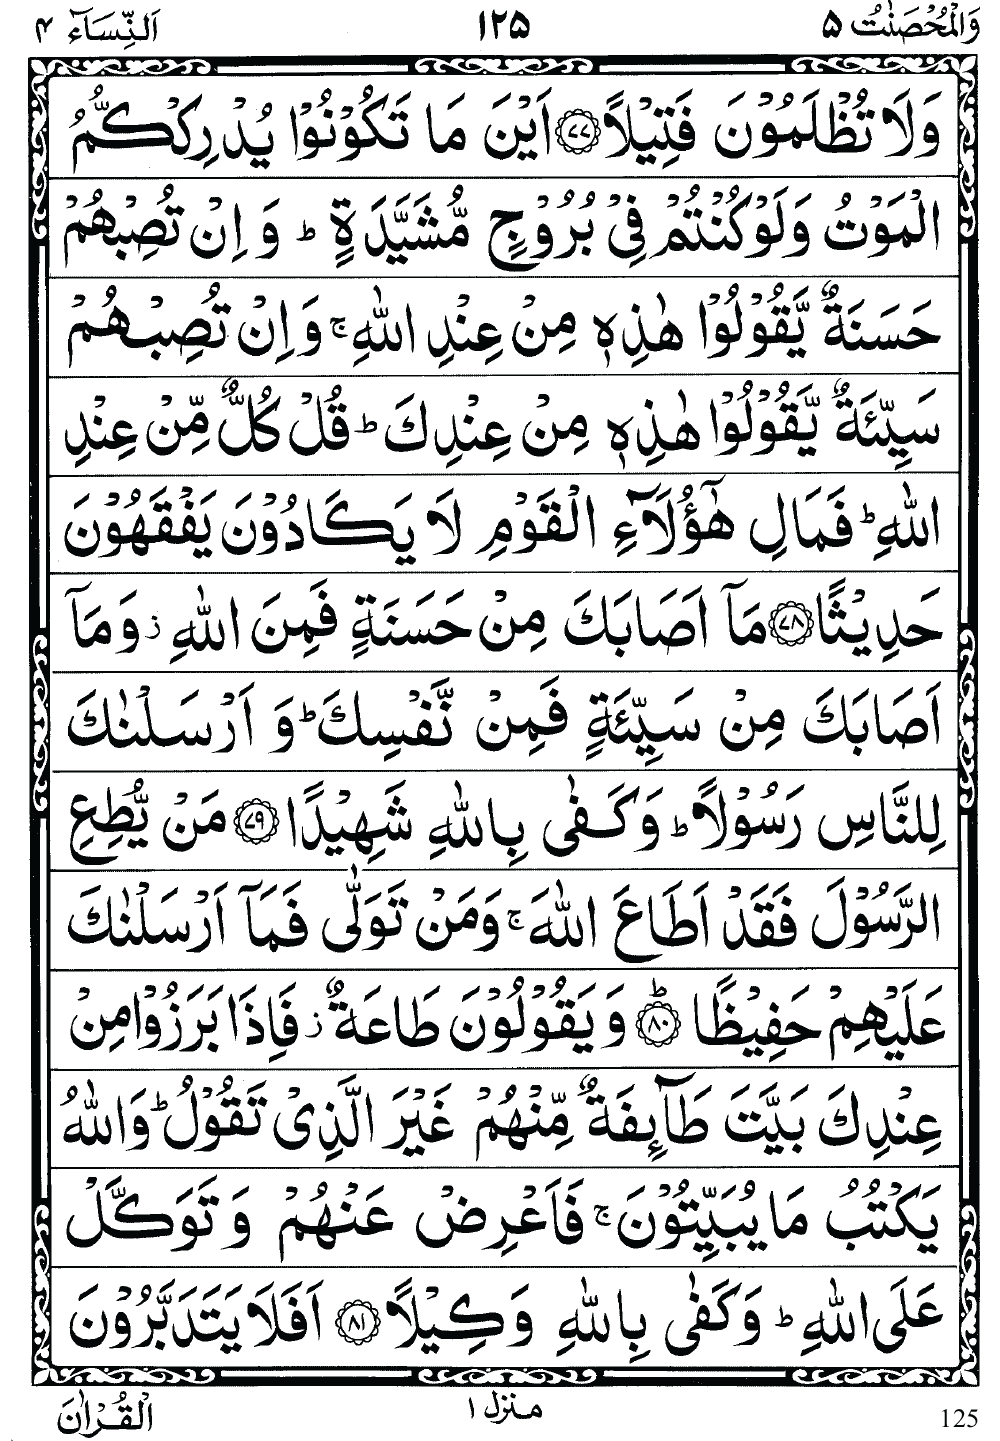 وَالْمُحْصَنٰتُ ۵ ۱۲۵ اَلنِّسَآء ۴
وَلَا تُظْلَمُوْنَ فَتِيْلًا ﴿۷۷﴾ اَيْنَ مَا تَكُوْنُوْا يُدْرِكْكُّمُ
الْمَوْتُ وَلَوْ كُنْتُمْ فِيْ بُرُوْجٍ مُّشَيَّدَةٍ ؕ وَ اِنْ تُصِبْهُمْ
حَسَنَةٌ يَّقُوْلُوْا هٰذِهٖ مِنْ عِنْدِ اللّٰهِ ۚ وَ اِنْ تُصِبْهُمْ
سَيِّئَةٌ يَّقُوْلُوْا هٰذِهٖ مِنْ عِنْدِكَ ؕ قُلْ كُلٌّ مِّنْ عِنْدِ
اللّٰهِ ؕ فَمَالِ هٰٓؤُلَآءِ الْقَوْمِ لَا يَكَادُوْنَ يَفْقَهُوْنَ
حَدِيْثًا ﴿۷۸﴾ مَآ اَصَابَكَ مِنْ حَسَنَةٍ فَمِنَ اللّٰهِ ز وَمَآ
اَصَابَكَ مِنْ سَيِّئَةٍ فَمِنْ نَّفْسِكَ ؕ وَ اَرْسَلْنٰكَ
لِلنَّاسِ رَسُوْلًا ؕ وَكَفٰى بِاللّٰهِ شَهِيْدًا ﴿۷۹﴾ مَنْ يُّطِعِ
الرَّسُوْلَ فَقَدْ اَطَاعَ اللّٰهَ ۚ وَمَنْ تَوَلّٰى فَمَآ اَرْسَلْنٰكَ
عَلَيْهِمْ حَفِيْظًا ﴿۸۰﴾ؕ وَ يَقُوْلُوْنَ طَاعَةٌ ز فَاِذَا بَرَزُوْا مِنْ
عِنْدِكَ بَيَّتَ طَآئِفَةٌ مِّنْهُمْ غَيْرَ الَّذِيْ تَقُوْلُ ؕ وَاللّٰهُ
يَكْتُبُ مَا يُبَيِّتُوْنَ ۚ فَاَعْرِضْ عَنْهُمْ وَ تَوَكَّلْ
عَلَى اللّٰهِ ؕ وَكَفٰى بِاللّٰهِ وَكِيْلًا ﴿۸۱﴾ اَفَلَا يَتَدَبَّرُوْنَ
الْقُرْاٰنَ منزل ۱ 125